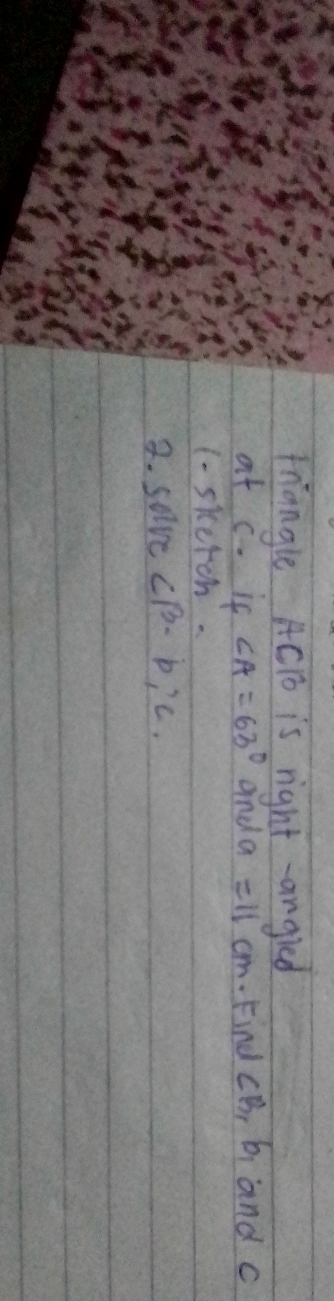 triangle ACB is right-angled
at C. if <A = 63° and a = 11 cm. Find <B, b, and c
1. sketch.
2. solve <B. b, c.